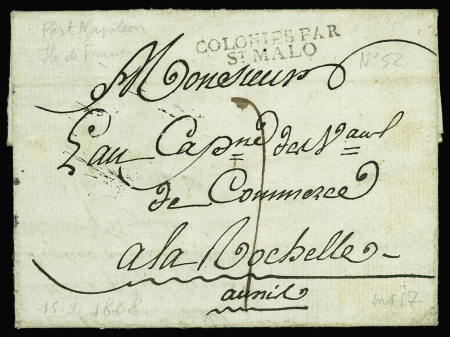 Port Napoleon
Ile de France
COLONIES PAR
ST MALO
N° 52
Monsieur
Lau Capne des Vaux
de Commerce
a la Rochelle
aunis
15. 1. 1808